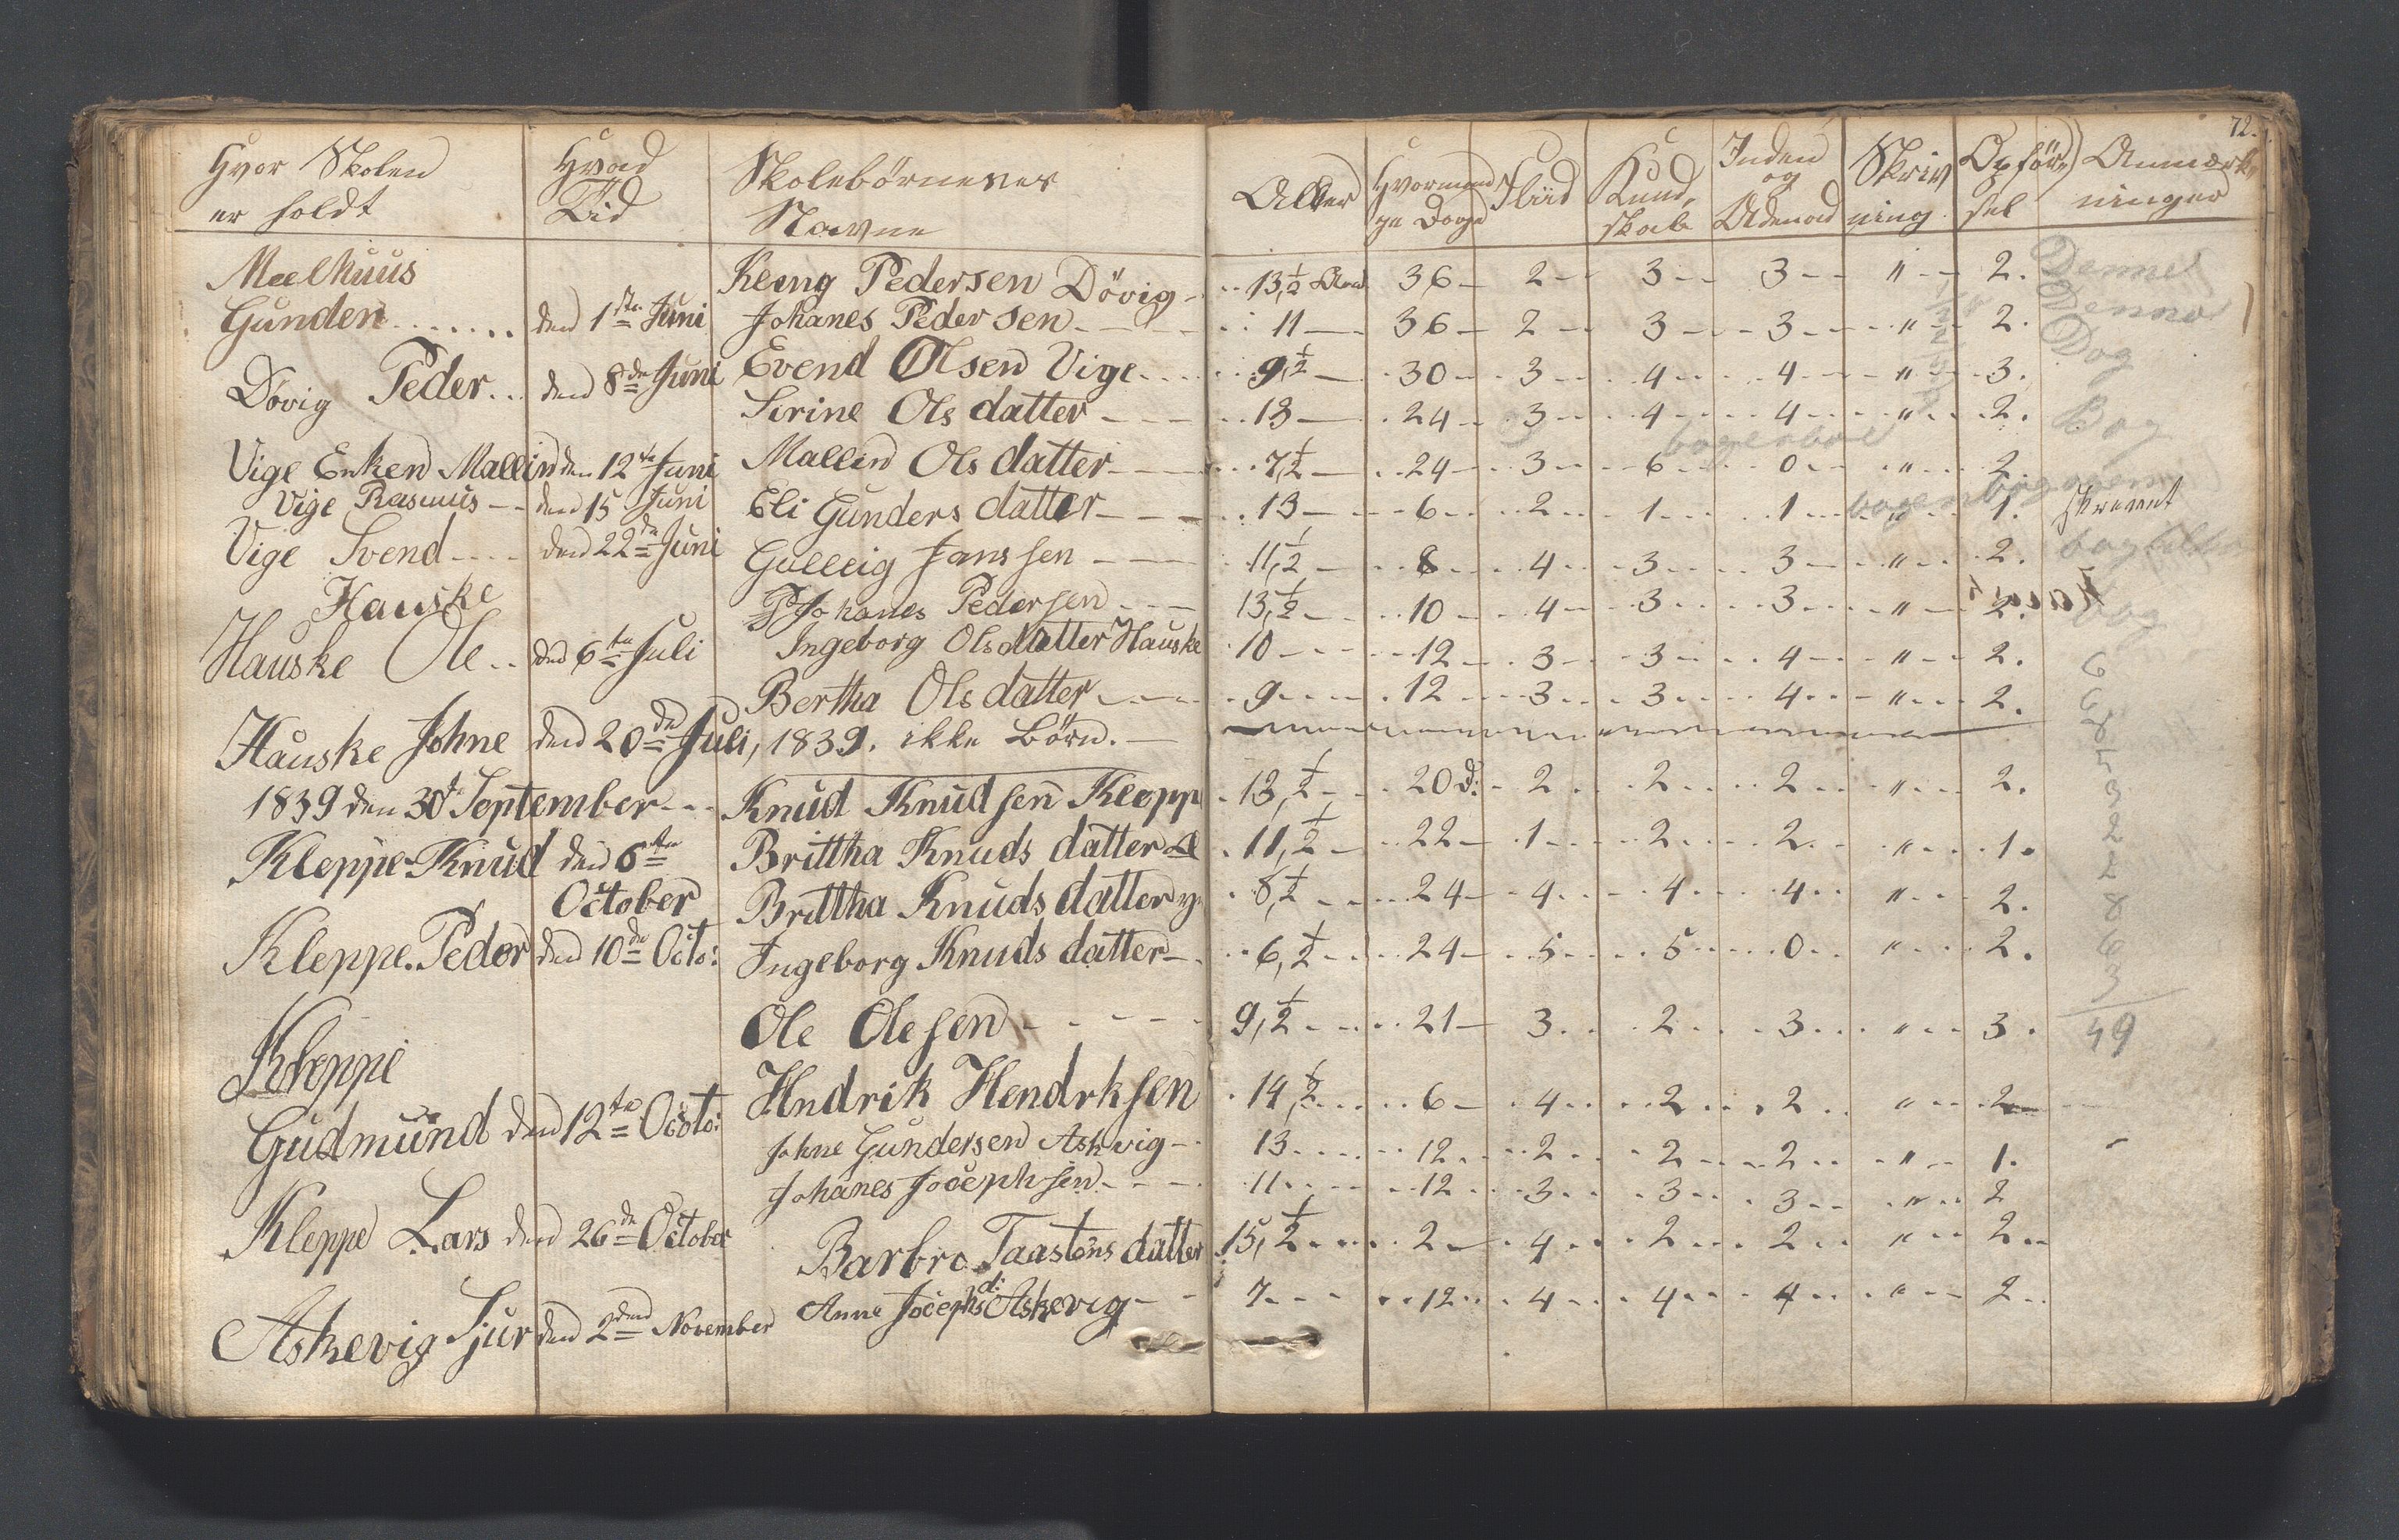 72.
Hvor Skolen er holdt | Hvad Tid | Skolebørnenes Navne | Alder | Hvormange Dage | Fliid | Kundskab | Inden og Udenad | Skrivning | Opförsel | Anmærkninger
Meelhuus | | Kleng Pedersen Dövig | 13,½ Aar | 36 | 2 | 3 | 3 | " | 2. | Denne
Gunden | den 1ste Juni | Johanes Pedersen | 11 | 36 | 2 | 3 | 3 | " | 2. | Denne
Dövig Peder | den 8de Juni | Evend Olsen Vige | 9,½ | 30 | 3 | 4 | 4 | " | 3. | Dog
Sirine Olsdatter | 13 | 24 | 3 | 4 | 4 | " | 2. | Bog
Vige Enken Mallin | den 12te Juni | Mallin Olsdatter | 7,½ | 24 | 3 | 6 | 0 | " | 2.
Vige Rasmus | den 15 Juni | Eli Gunders datter | 13 | 6 | 2 | 1 | 1 | " | 1. | skrevet
Vige Svend | den 22de Juni | Gulleig Janssen | 11,½ | 8 | 4 | 3 | 3 | " | 2.
Hauske | | Johanes Pedersen | 13,½ | 10 | 4 | 3 | 3 | " | 2. | bog
Hauske Ole | den 6te Juli | Ingeborg Olsdatter Hauske | 10 | 12 | 3 | 3 | 4 | " | 2. | 6
Bertha Olsdatter | 9 | 12 | 3 | 3 | 4 | " | 2. | 6
Hauske Johne | den 20de Juli, 1839. ikke Börn. | 8
1839 den 30te September | Knud Knudsen Klepp | 13,½ | 20 d: | 2 | 2 | 2 | " | 2.
Kleppe Knud | den 6te October | Brittha Knuds datter | 11,½ | 22 | 1 | 2 | 2 | " | 1. | 2
Brittha Knuds datter | 8,½ | 24 | 4 | 4 | 4 | " | 2. | 8
Kleppe Peder | den 10de Octo: | Ingeborg Knuds datter | 6,½ | 24 | 5 | 5 | 0 | " | 2. | 6
3
Kleppe | | Ole Olesen | 9,½ | 21 | 3 | 2 | 3 | " | 3. | 49
Gudmund | den 12te Octo: | Hndrik Hendrksen | 14,½ | 6 | 4 | 2 | 2 | " | 2
Johne Gundersen Askvig | 13 | 12 | 2 | 2 | 2 | " | 1.
Johanes Jocephsen | 11 | 12 | 3 | 3 | 3 | " | 2
Kleppe Lars | den 26de October | Barbro Taastens datter | 15,½ | 2 | 4 | 2 | 2 | " | 2
Askevig Sjur | den 2den November | Anne Jocephs d: Askevig | 7 | 12 | 4 | 4 | 4 | " | 2